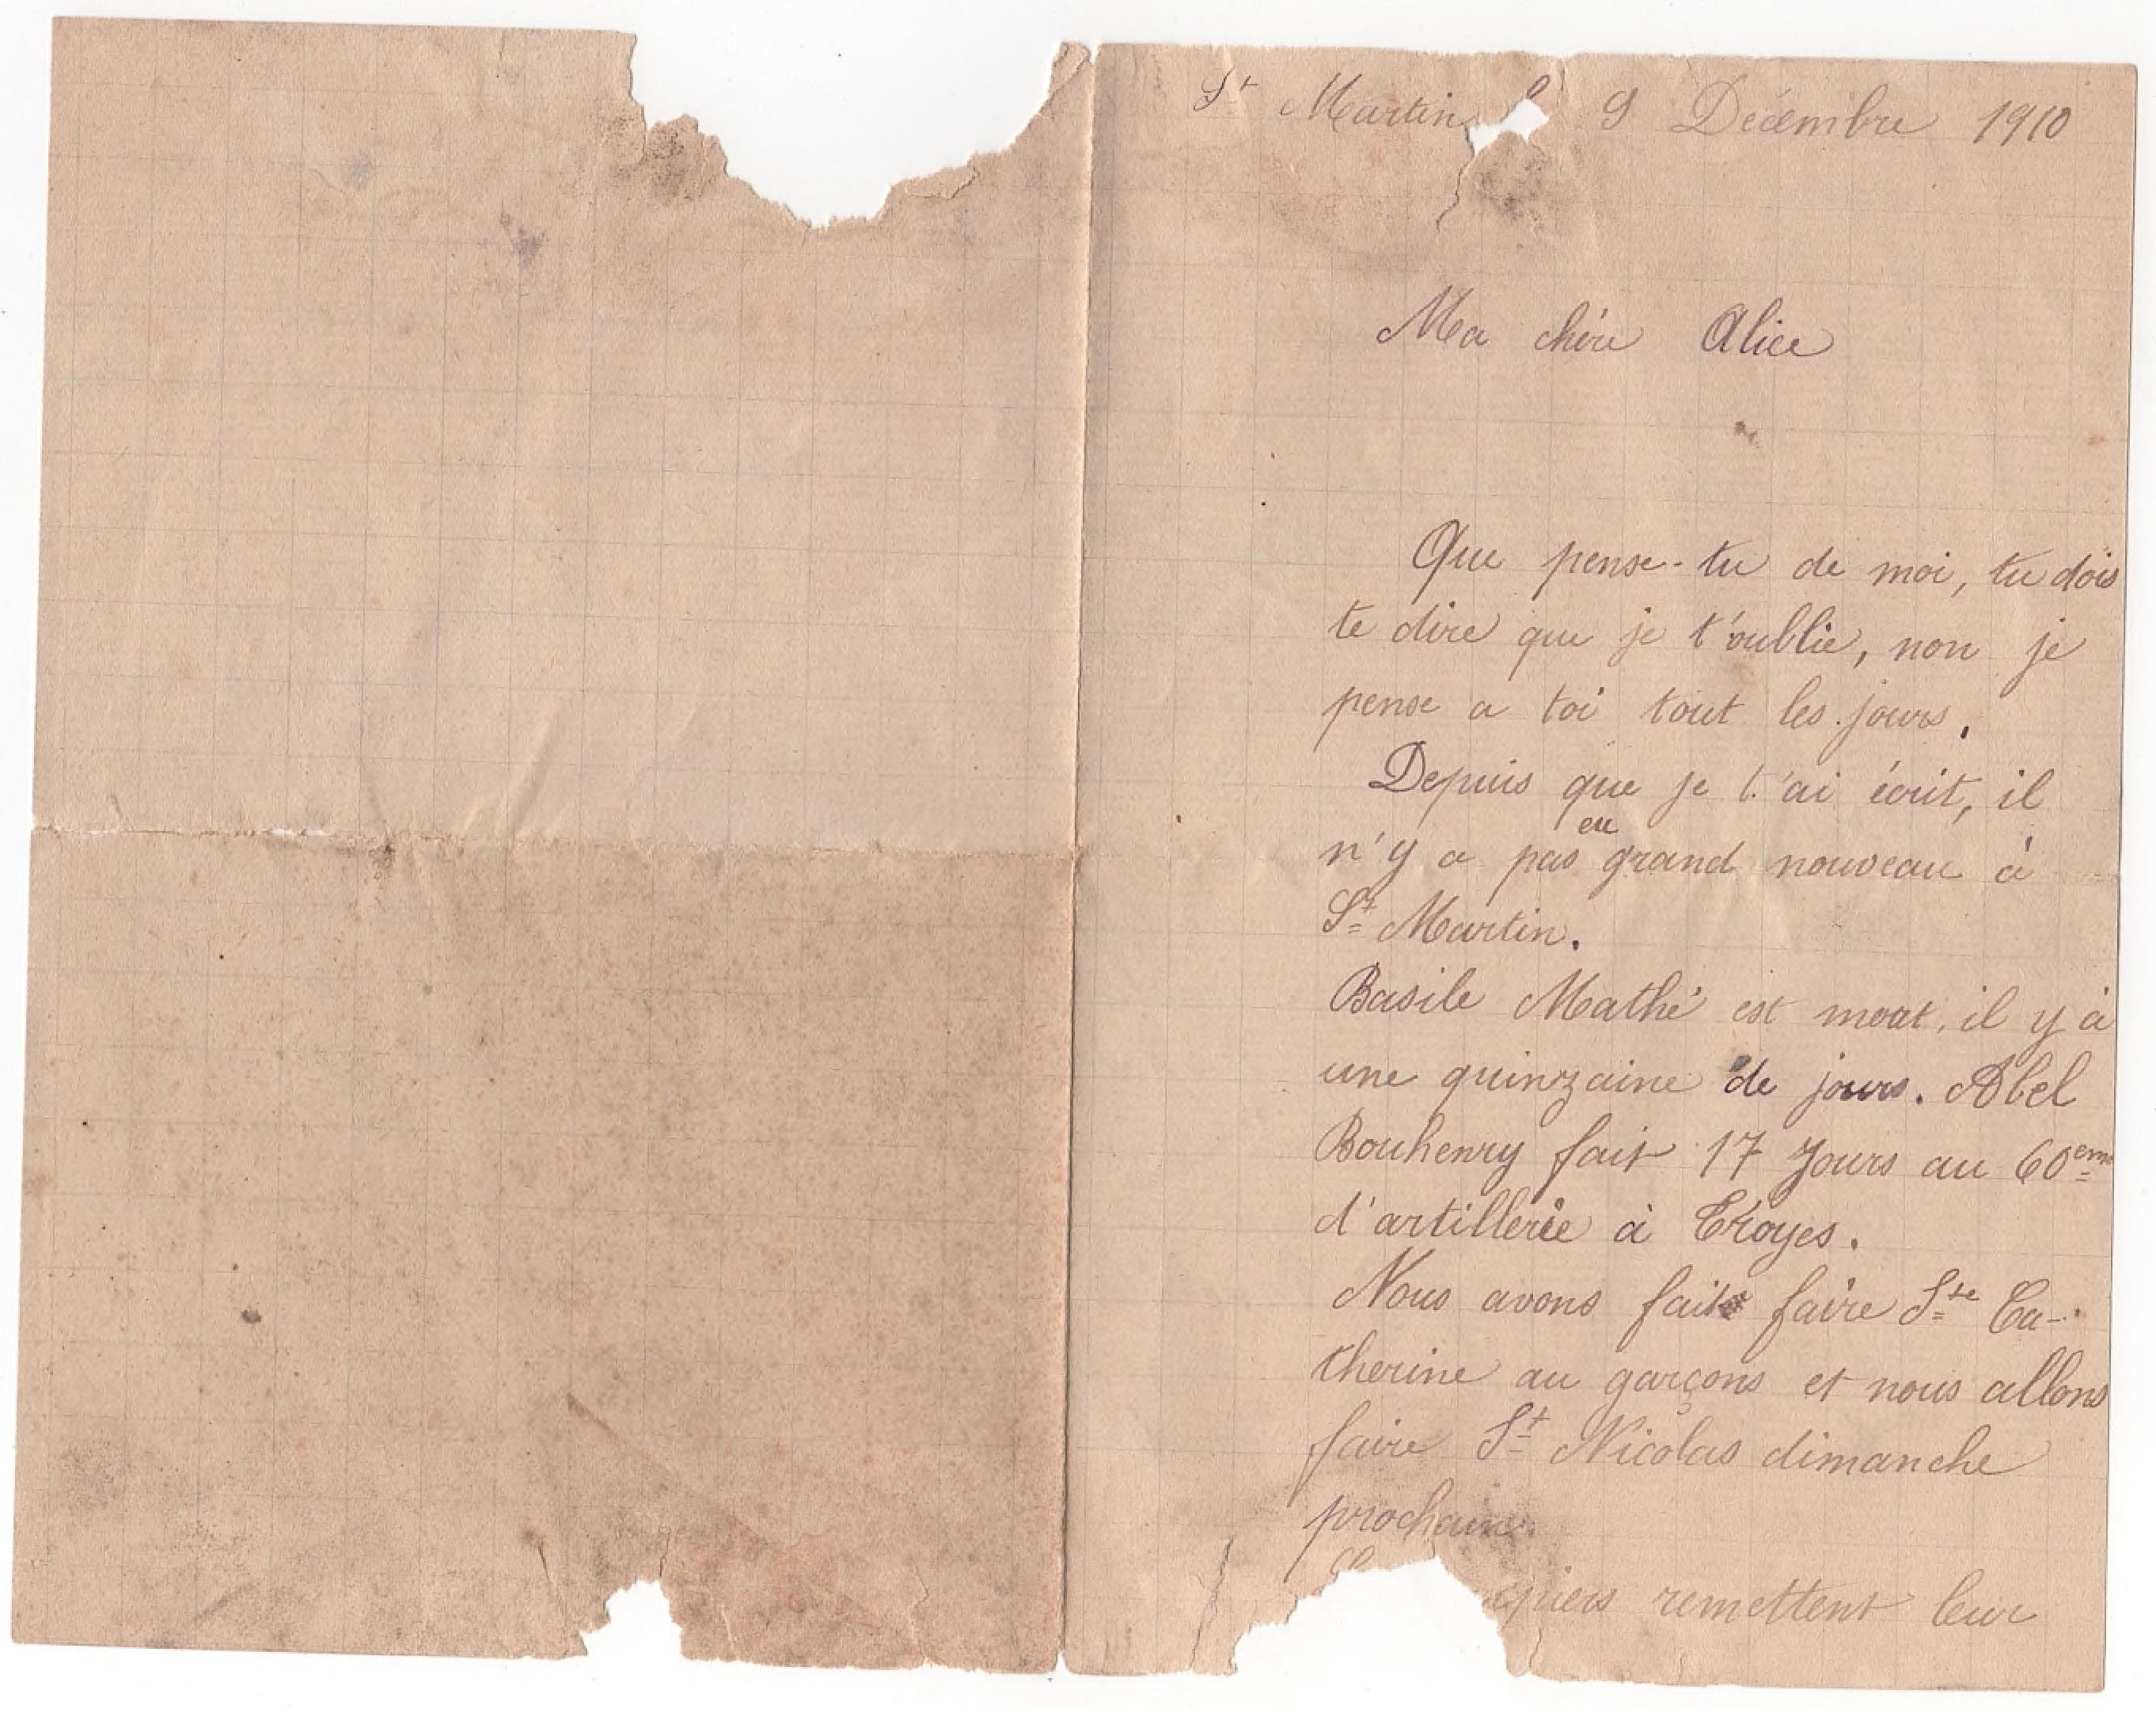 St Martin 9 Décembre 1910
Ma chère Alice
Que pense-tu de moi, tu dois
te dire que je t'oublie, non je
pense a toi tout les jours.
Depuis que je t'ai écrit, il
n'y a pas eu grand nouveau à
St Martin.
Basile Mathé est mort, il y à
une quinzaine de jours. Abel
Bouhenry fait 17 Jours au 60eme
d'artillerie à Troyes.
Nous avons fait faire Ste Ca-
therine au garçons et nous allons
faire St Nicolas dimanche
prochain.
remettent leur